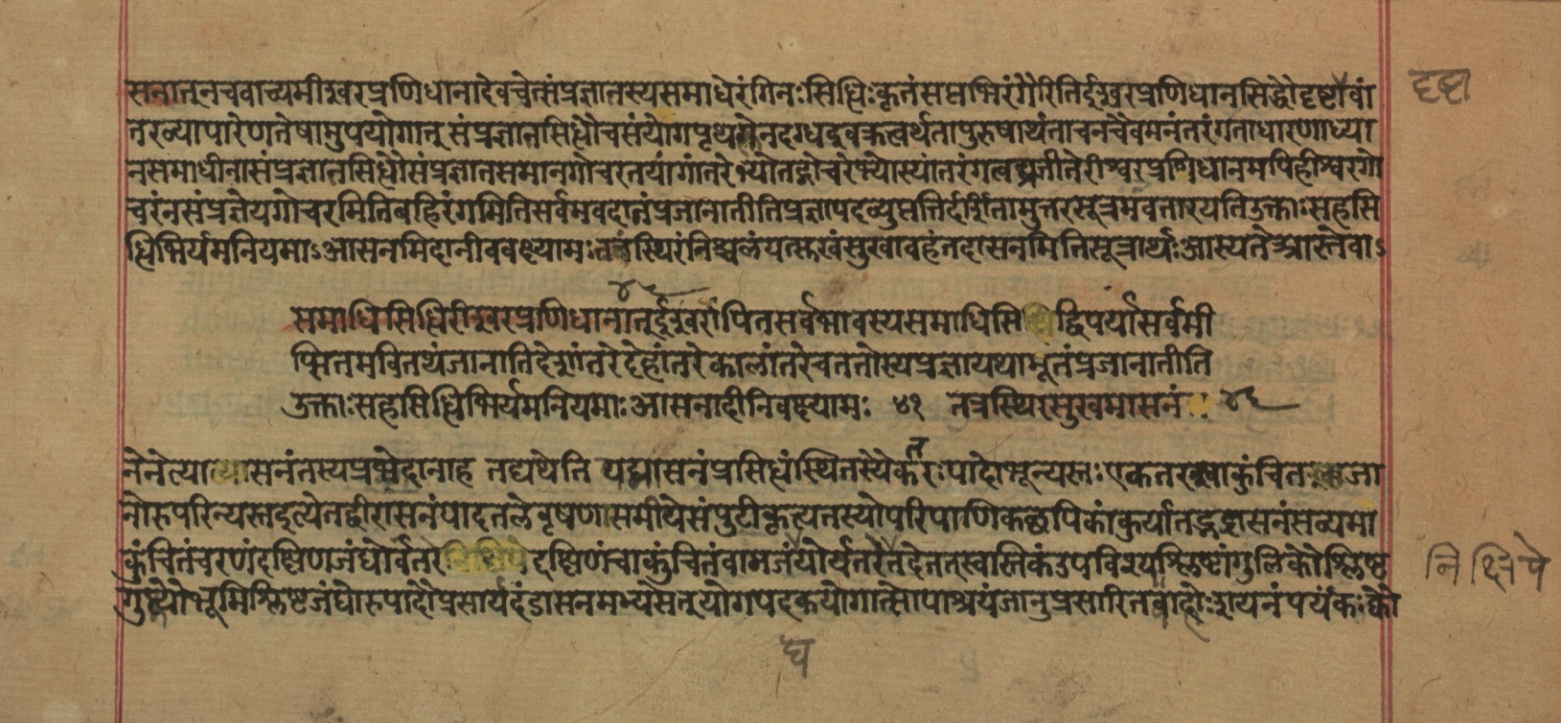 सनात् नचवाच्यमीश्वरप्रणिधानादेवचेत्संप्रज्ञातस्यसमाधेरंगिनःसिद्धिःकृतंसप्तभिरंगैरितिईश्वरप्रणिधानसिद्धौदृष्टावां दृष्टा
तरव्यापारेणतेषामुपयोगात् संप्रज्ञातसिद्धौचसंयोगपृथक्त्वेनदध्नइवक्रत्वर्थतापुरुषार्थताचनचैवमनंतरंगताधारणाध्या
नसमाधीनांसंप्रज्ञातसिद्धौसंप्रज्ञातसमानगोचरतयांगांतरेभ्योतद्गोचरेभ्योस्यांतरंगत्वप्रतीतेरीश्वरप्रणिधानमपिहीश्वरगो
चरंनसंप्रज्ञेयगोचरमितिबहिरंगमितिसर्वमवदातंप्रजानातीतिप्रज्ञापदव्युत्पत्तिर्दर्शितामुत्तरसूत्रमवतारयतिउक्ताःसहसि
द्धिभिर्यमनियमाःआसनमिदानींवक्ष्यामः स्थिरंनिश्चलंयत्सुखंसुखावहंतदासनमितिसूत्रार्थःआस्यतेआस्तेवाऽ
समाधिसिद्धिरीश्वरप्रणिधानात् ४५ ईश्वरार्पितसर्वभावस्यसमाधिसिद्धिर्ययासर्वमी
प्सितमवितथंजानातिदेशांतरेदेहांतरेकालांतरेचततोस्यप्रज्ञायथाभूतंप्रजानातीति
उक्ताःसहसिद्धिभिर्यमनियमाःआसनादीनिवक्ष्यामः ४१ तत्रस्थिरसुखमासनं ४६
नेनेत्याआसनंतस्यप्रभेदानाह तद्यथेति पद्मासनंप्रसिद्धंस्थितस्यैकतरःपादोभून्यस्तःएकतरश्चाकुंचित जा
नोरुपरिन्यस्तइत्येतद्वीरासनंपादतलेवृषणसमीपेसंपुटीकृत्यतस्योपरिपाणिकच्छपिकांकुर्यात्तद्भद्रासनंसव्यमा
कुंचितंचरणंदक्षिणजंघोर्वंतरेनिक्षिपेत् दक्षिणंचाकुंचितंवामजंघोर्वंतरेतदेतत्स्वास्तिकंउपविश्यश्लिष्टांगुलिकौश्लिष्ट निक्षिपे
गुष्ठौभूमिश्लिष्टजंघोरुपादौप्रसार्यदंडासनमभ्यसेत् योगपट्टकयोगात्सोपाश्रयंजानुप्रसारितबाहोःशयनंपर्यंकःक्रौ
घ